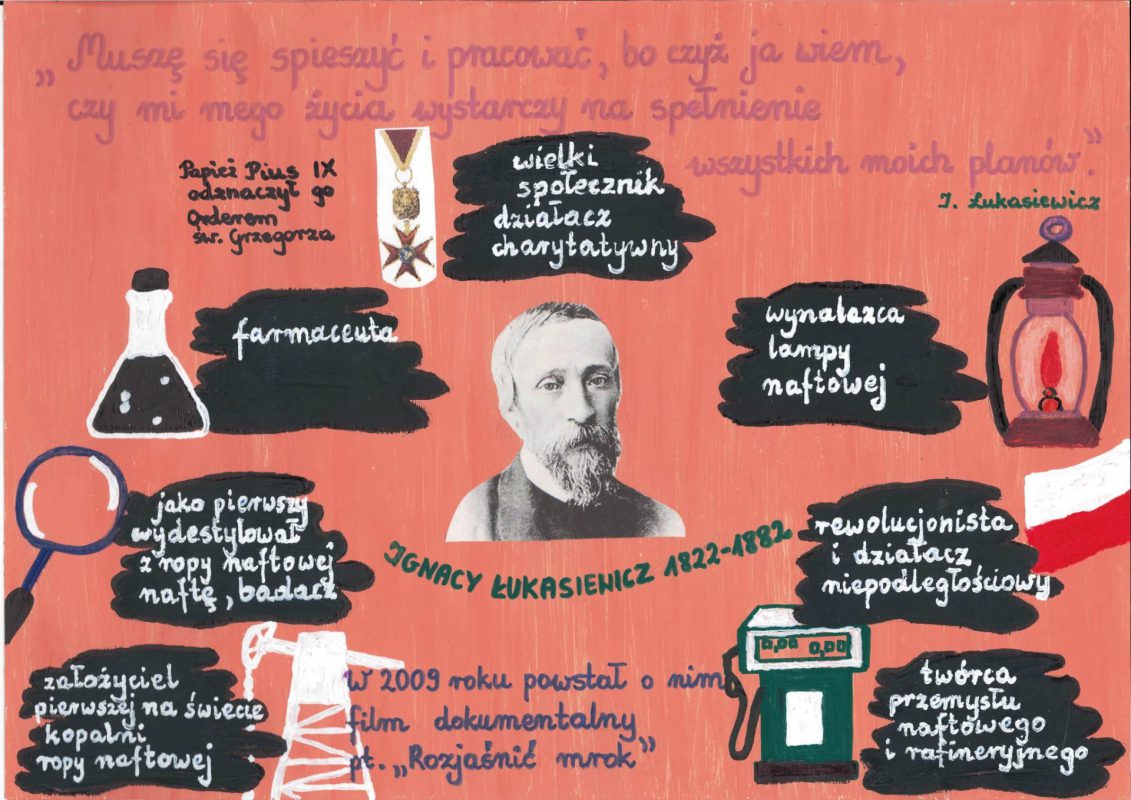 „Muszę się spieszyć i pracować, bo czyż ja wiem,
czy mi mego życia wystarczy na spełnienie
wszystkich moich planów."
I. Łukasiewicz
Papież Pius IX
odznaczył go
Orderem
św. Grzegorza
wielki
społecznik
działacz
charytatywny
farmaceuta
wynalazca
lampy
naftowej
jako pierwszy
wydestylował
z ropy naftowej
naftę, badacz
IGNACY ŁUKASIEWICZ 1822-1882
rewolucjonista
i działacz
niepodległościowy
założyciel
pierwszej na świecie
kopalni
ropy naftowej
W 2009 roku powstał o nim
film dokumentalny
pt. „Rozjaśnić mrok"
0,00 0,00
twórca
przemysłu
naftowego
i rafineryjnego